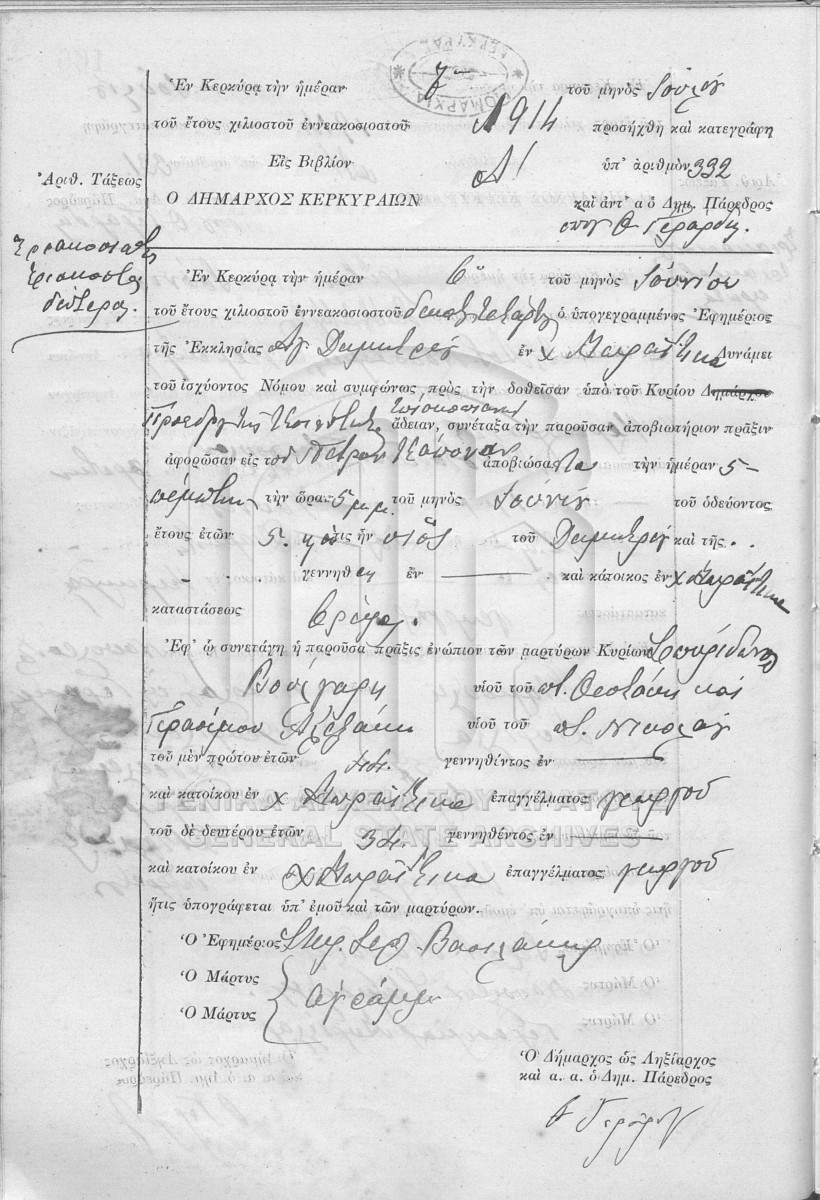 ΔΗΜΑΡΧΙΑ ΚΕΡΚΥΡΑΣ
Ἐν Κερκύρᾳ τὴν ἡμέραν τοῦ μηνὸς
τοῦ ἔτους χιλιοστοῦ ἐννεακοσιοστοῦ 1914 προσήχθη καὶ κατεγράφη
Εἰς Βιβλίον Α' ὑπ' ἀριθμὸν 332
Ἀριθ. Τάξεως
Ο ΔΗΜΑΡΧΟΣ ΚΕΡΚΥΡΑΙΩΝ καὶ ἀντ' α ὁ Δημ. Πάρεδρος
δεύτερα.
Ἐν Κερκύρᾳ τὴν ἡμέραν 6 τοῦ μηνὸς Ἰουνίου
τοῦ ἔτους χιλιοστοῦ ἐννεακοσιοστοῦ δεκάτου τετάρτου ὁ ὑπογεγραμμένος Ἐφημέριος
τῆς Ἐκκλησίας Αγ. Δημητρίου ἐν χ Δυνάμει
τοῦ ἰσχύοντος Νόμου καὶ συμφώνως πρὸς τὴν δοθεῖσαν ὑπὸ τοῦ Κυρίου Δημάρχου
ἄδειαν, συνέταξα τὴν παροῦσαν ἀποβιωτήριον πρᾶξιν
ἀφορῶσαν εἰς τὸν Πέτρον ἀποβιώσαντα τὴν ἡμέραν 5
πέμπτην τὴν ὥραν 5 μ.μ. τοῦ μηνὸς Ἰουνίου τοῦ ὁδεύοντος
ἔτους ἐτῶν 5. ὅστις ἦν υἱὸς τοῦ Δημητρίου καὶ τῆς
γεννηθεὶς ἐν — καὶ κάτοικος ἐν χ
καταστάσεως
Ἐφ' ᾧ συνετάγη ἡ παροῦσα πρᾶξις ἐνώπιον τῶν μαρτύρων Κυρίων Σπυρίδωνος
Βούλγαρη υἱοῦ τοῦ καὶ
Γερασίμου υἱοῦ τοῦ π. Νικολάου
τοῦ μὲν πρώτου ἐτῶν 44. γεννηθέντος ἐν —
καὶ κατοίκου ἐν χ ἐπαγγέλματος γεωργοῦ
ΓΕΝΙΚΑ ΑΡΧΕΙΑ ΤΟΥ ΚΡΑΤΟΥΣ
τοῦ δὲ δευτέρου ἐτῶν 34. γεννηθέντος ἐν —
GENERAL STATE ARCHIVES
καὶ κατοίκου ἐν χ ἐπαγγέλματος γεωργοῦ
ἥτις ὑπογράφεται ὑπ' ἐμοῦ καὶ τῶν μαρτύρων.
Ὁ Ἐφημέριος
Ὁ Μάρτυς
ἀγράμματοι
Ὁ Μάρτυς
Ὁ Δήμαρχος ὡς Ληξίαρχος
καὶ α. α. ὁ Δημ. Πάρεδρος